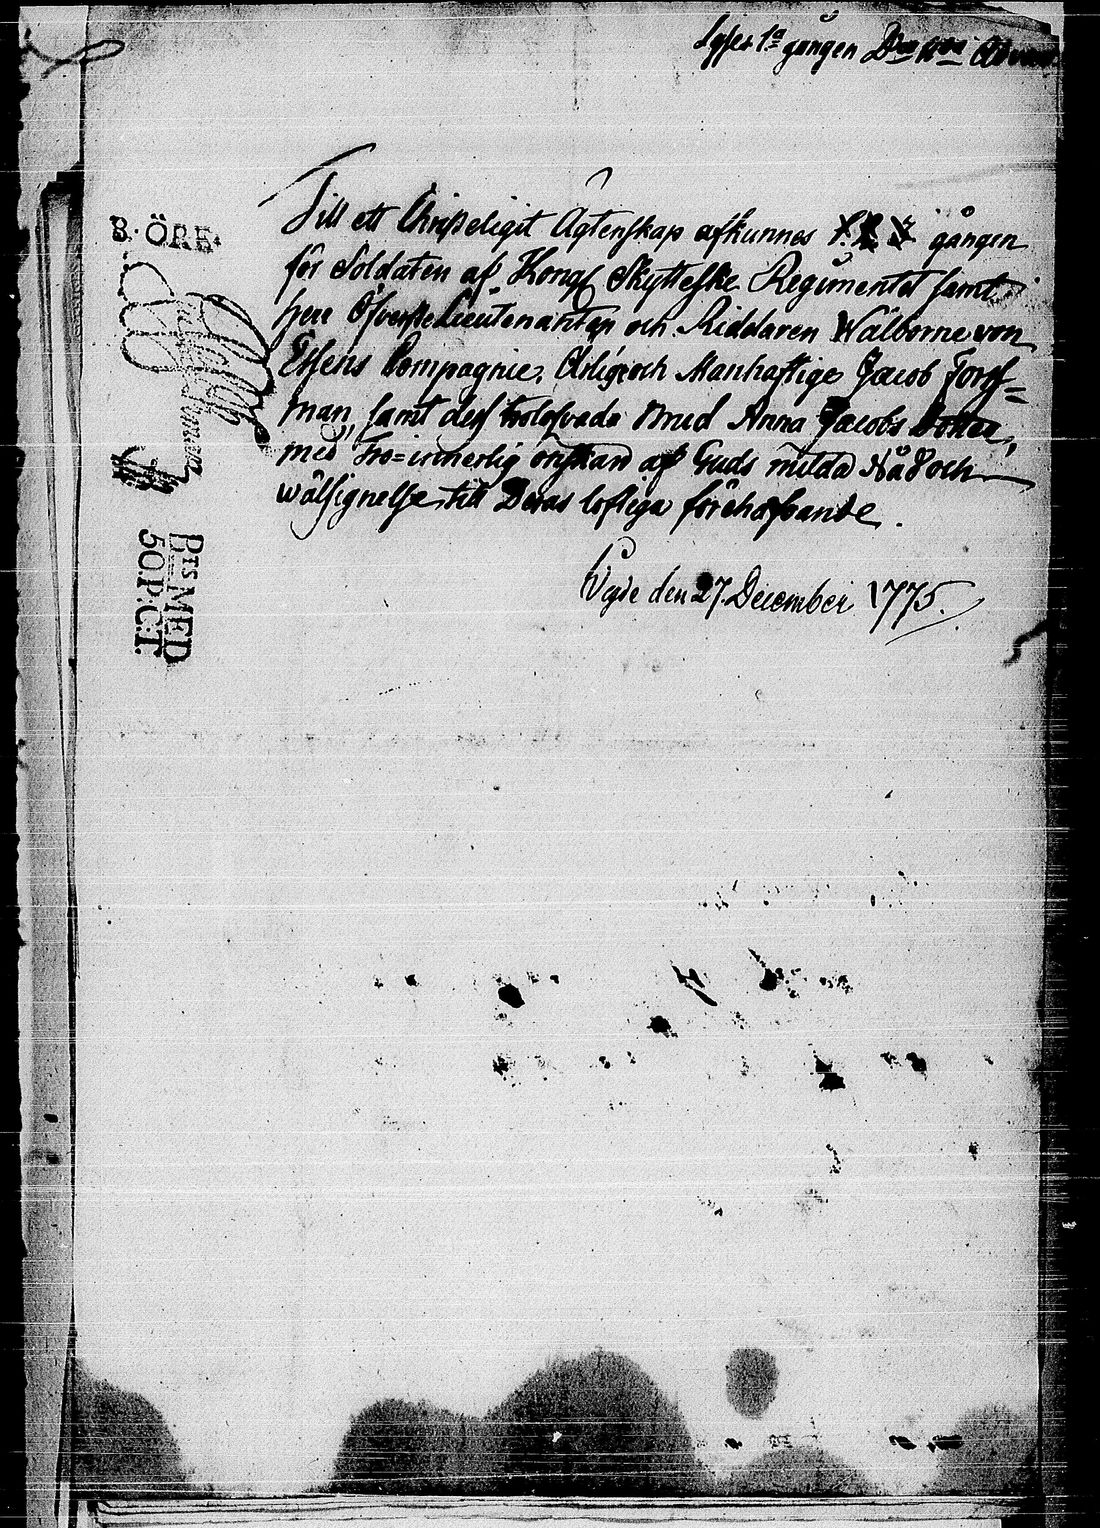 Lyses 1a gången
Till ett Christeligit Ägtenskap afkunnes gången
för Soldaten af Kongl Skytteske Regimentet samt
herr Öfverste Lieutenanten och Riddaren Wälborne von
Essens Compagnie, Ärlig och Manhaftige Jacob Forss=
man, samt dess trolofvada Brud Anna Jacobs Dotter,
med Tro=innerlig önskan af Guds milda Nåd och
wälsignelse till Deras lofliga förehafvande.
den 27 December 1775.
8·ÖRE·
BTS MED
50.P:C:T.